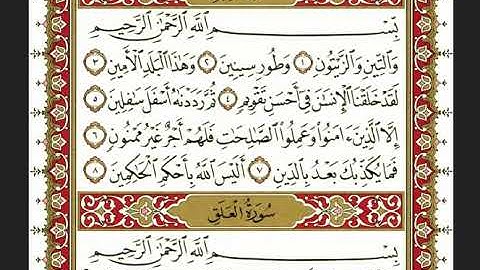 بِسْمِ ٱللَّهِ ٱلرَّحْمَٰنِ ٱلرَّحِيمِ
وَٱلتِّينِ وَٱلزَّيْتُونِ ١ وَطُورِ سِينِينَ ٢ وَهَٰذَا ٱلْبَلَدِ ٱلْأَمِينِ ٣
لَقَدْ خَلَقْنَا ٱلْإِنسَٰنَ فِىٓ أَحْسَنِ تَقْوِيمٍ ٤ ثُمَّ رَدَدْنَٰهُ أَسْفَلَ سَٰفِلِينَ ٥
إِلَّا ٱلَّذِينَ ءَامَنُوا۟ وَعَمِلُوا۟ ٱلصَّٰلِحَٰتِ فَلَهُمْ أَجْرٌ غَيْرُ مَمْنُونٍ ٦
فَمَا يُكَذِّبُكَ بَعْدُ بِٱلدِّينِ ٧ أَلَيْسَ ٱللَّهُ بِأَحْكَمِ ٱلْحَٰكِمِينَ ٨
سُورَةُ ٱلْعَلَقِ
بِسْمِ ٱللَّهِ ٱلرَّحْمَٰنِ ٱلرَّحِيمِ